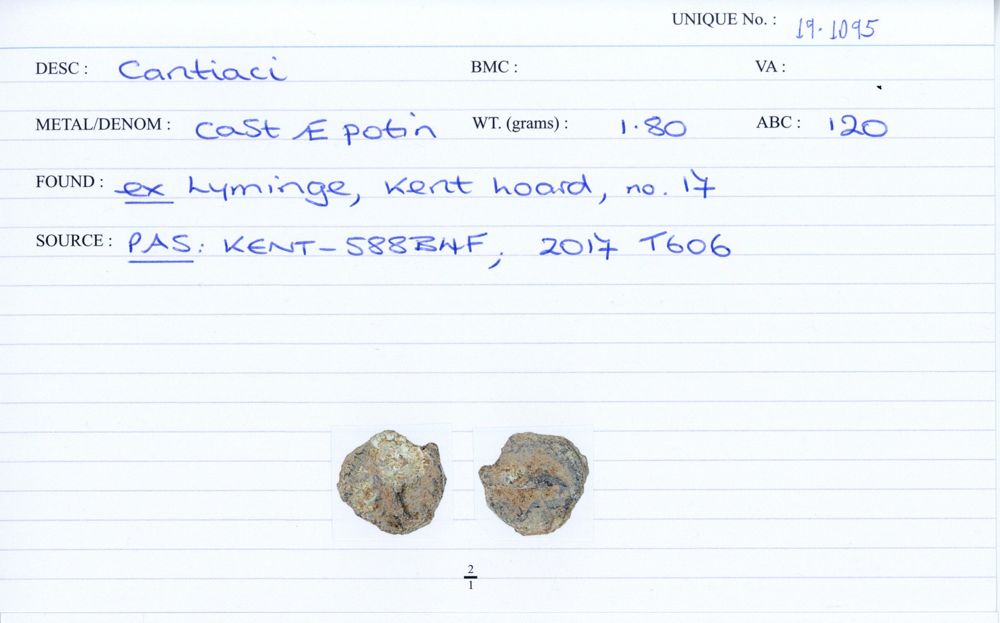 UNIQUE No. : 19.1095
DESC : Cantiaci BMC : VA :
METAL/DENOM : Cast Æ potin WT. (grams) : 1.80 ABC : 120
FOUND : ex Lyminge, Kent hoard, no. 17
SOURCE : PAS: KENT-588B4F, 2017 T606
2
1